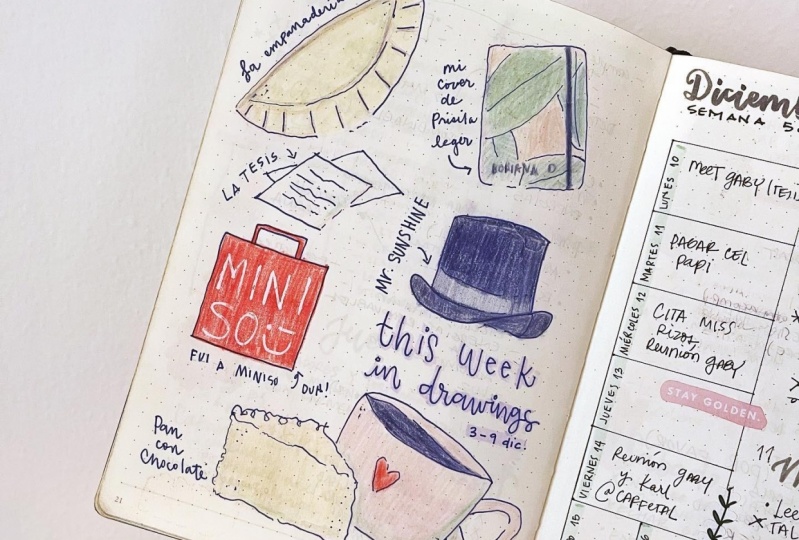 la empanaderia
mi
cover
de
Prisila
leger
LA TESIS
MR. SUNSHINE
MINI
SO
FUI A MINISO
this week
in drawings
3-9 dic.
Pan
con
Chocolate
21
Diciem
SEMANA 5
LUNES 10
MEET GABY
MARTES 11
PAGAR CEL
papi
MIÉRCOLES 12
CITA MISS
Rizos,
Reunión GABY
JUEVES 13
STAY GOLDEN.
VIERNES 14
Reunión GABY
y Karl
@CAFFETAL
15
11